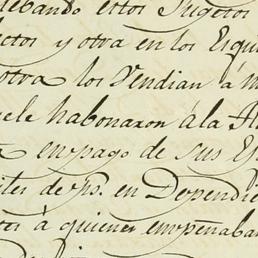 lebando estos Sugetos
ctos y otra en los Esqui
otra los Vendian á m
uele habonaron á la
en pago de sus
de ps. en Dependie
á quienes empeñaba